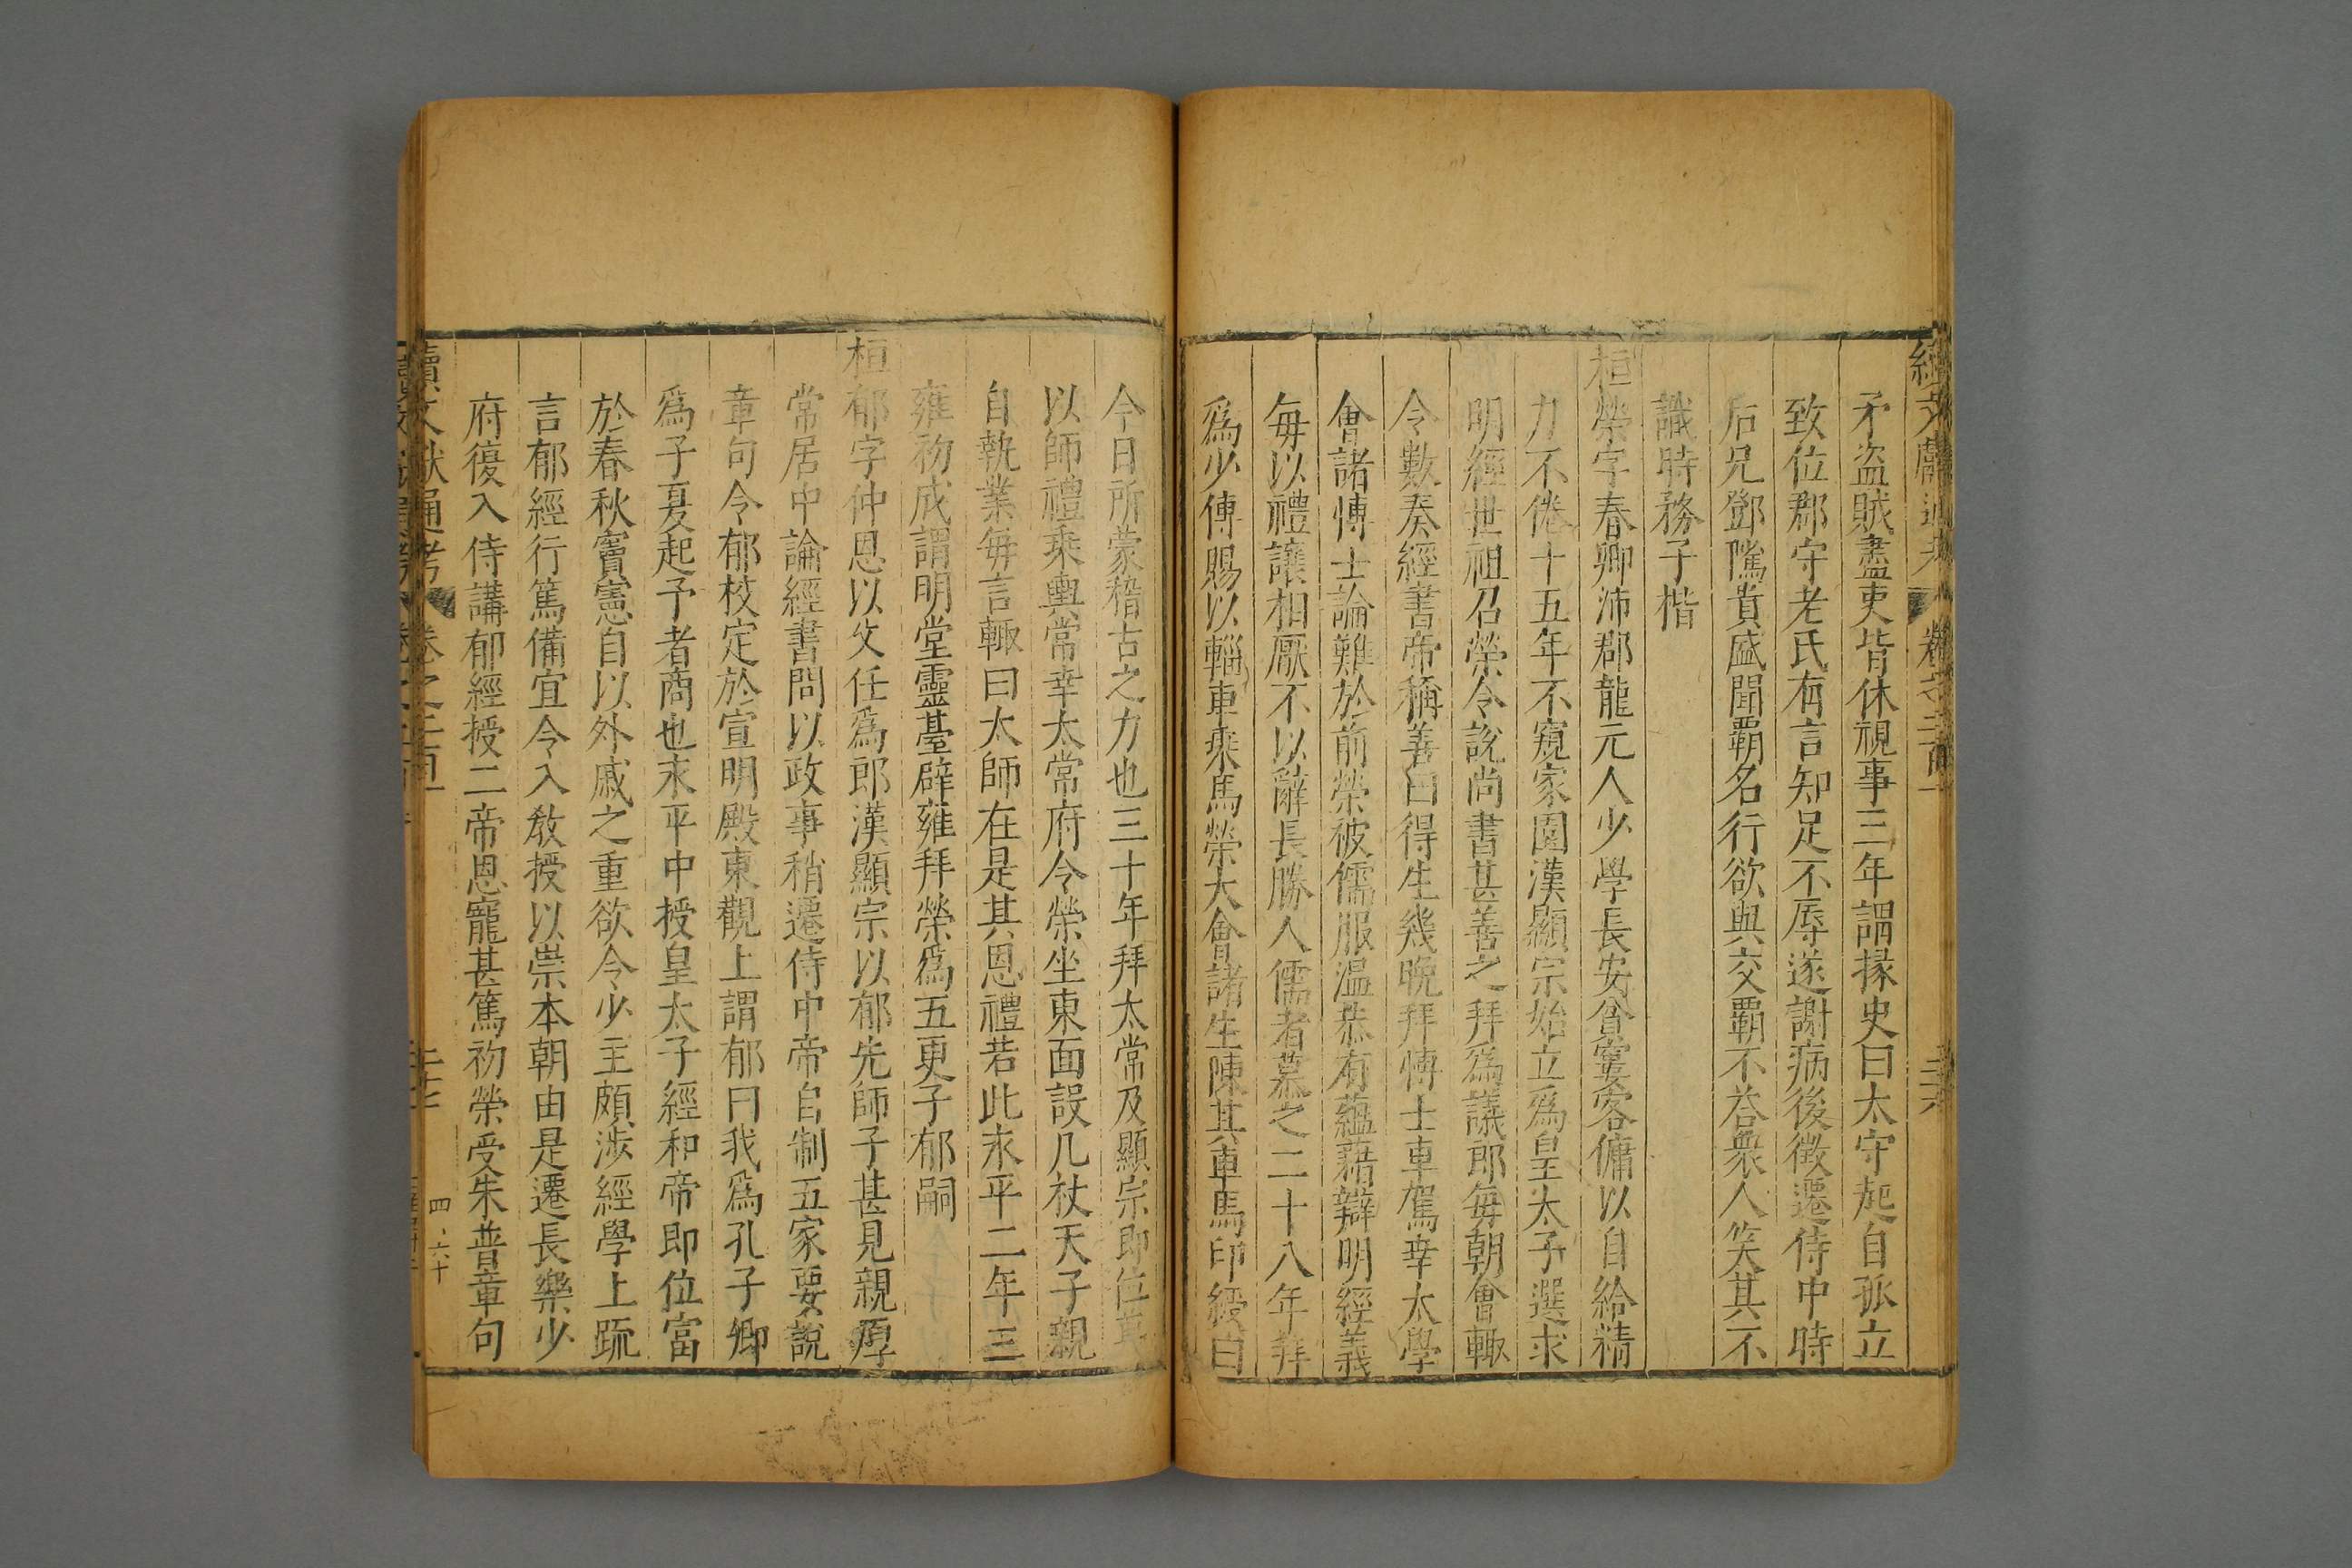 續文獻通考 卷之二百一 二十六
矛盗賊盡吏皆休視事三年謂掾史曰太守起自孤立
致位郡守老氏有言知足不辱遂謝病後徵遷侍中時
后兄鄧隲貴盛聞覇名行欲與交覇不荅衆人笑其不
識時務子楷
桓榮字春卿沛郡龍元人少學長安貧窶客傭以自給精
力不倦十五年不窺家園漢顯宗始立爲皇太子選求
明經世祖召榮令說尚書甚善之拜爲議郎每朝會輙
令敷奏經書帝稱善曰得生幾晚拜博士車駕幸太學
會諸博士論難於前榮被儒服温恭有蘊藉辯明經義
每以禮讓相厭不以辭長勝人儒者慕之二十八年拜
爲少傅賜以輜車乘馬榮大會諸生陳其車馬印綬曰
今日所蒙稽古之力也三十年拜太常及顯宗即位
以師禮乘輿常幸太常府令榮坐東面設几杖天子親
自執業每言輙曰太師在是其恩禮若此永平二年三
雍初成謂明堂靈臺辟雍拜榮爲五更子郁嗣
桓郁字仲恩以父任爲郎漢顯宗以郁先師子甚見親厚
常居中論經書問以政事稍遷侍中帝自制五家要說
章句令郁校定於宣明殿東觀上謂郁曰我爲孔子卿
爲子夏起予者商也永平中授皇太子經和帝即位富
於春秋竇憲自以外戚之重欲令少主頗涉經學上疏
言郁經行篤備宜令入教授以崇本朝由是遷長樂少
府復入侍講郁經授二帝恩寵甚篤初榮受朱普章句
續文獻通考 卷之二百一 二十七 四、六十